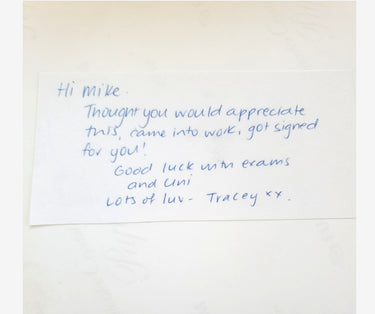 Hi Mike.
Thought you would appreciate
this, came into work, got signed
for you!
Good luck with exams
and Uni
Lots of luv - Tracey xx.